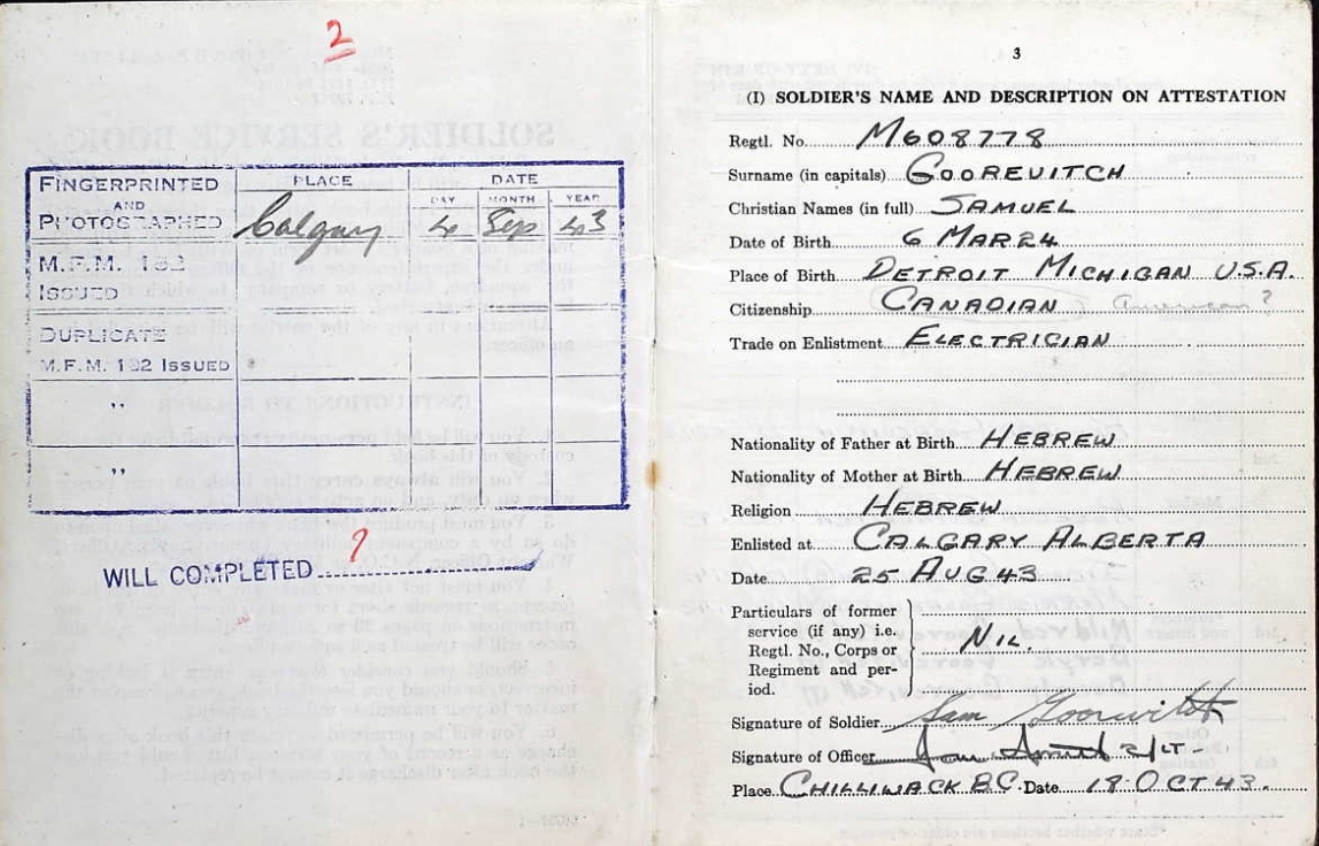 2
FINGERPRINTED AND PHOTOGRAPHED PLACE DATE
DAY MONTH YEAR
Calgary 4 Sep 43
M.F.M. 182
ISSUED
DUPLICATE
M.F.M. 182 ISSUED
"
"
WILL COMPLETED ?
3
(I) SOLDIER'S NAME AND DESCRIPTION ON ATTESTATION
Regtl. No. M608778
Surname (in capitals) GOOREVITCH
Christian Names (in full) SAMUEL
Date of Birth 6 MAR 24
Place of Birth DETROIT MICHIGAN U.S.A.
Citizenship CANADIAN American ?
Trade on Enlistment ELECTRICIAN
Nationality of Father at Birth HEBREW
Nationality of Mother at Birth HEBREW
Religion HEBREW
Enlisted at CALGARY ALBERTA
Date 25 AUG 43
Particulars of former
service (if any) i.e.
Regtl. No., Corps or NIL.
Regiment and per-
iod.
Signature of Soldier Sam Goorevitch
Signature of Officer 2/LT
Place CHILLIWACK B.C. Date 18 OCT 43.